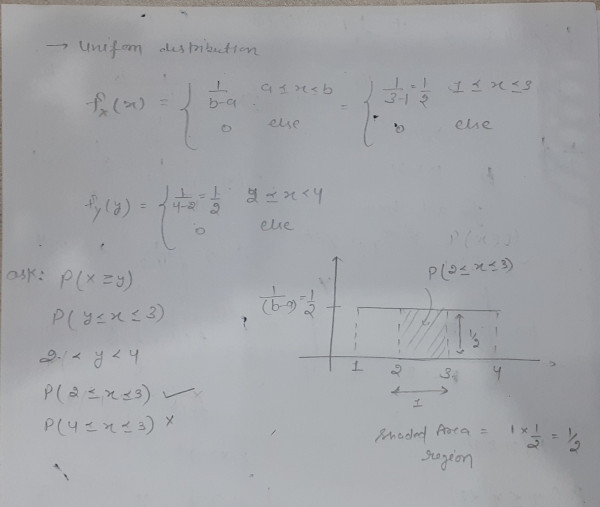 → Uniform distribution
fx(x) = { 1/(b-a) a ≤ x ≤ b = { 1/(3-1) = 1/2 1 ≤ x ≤ 3
0 else 0 else
fy(y) = { 1/(4-2) = 1/2 2 ≤ x < 4
0 else
ask: P(x ≥ y)
P(y ≤ x ≤ 3)
2 < y < 4
P(2 ≤ x ≤ 3) ✓
P(4 ≤ x ≤ 3) ×
P(2 ≤ x ≤ 3)
1/(b-a) = 1/2
1/2
1 2 3 4
1
Shaded Area = 1 × 1/2 = 1/2
region